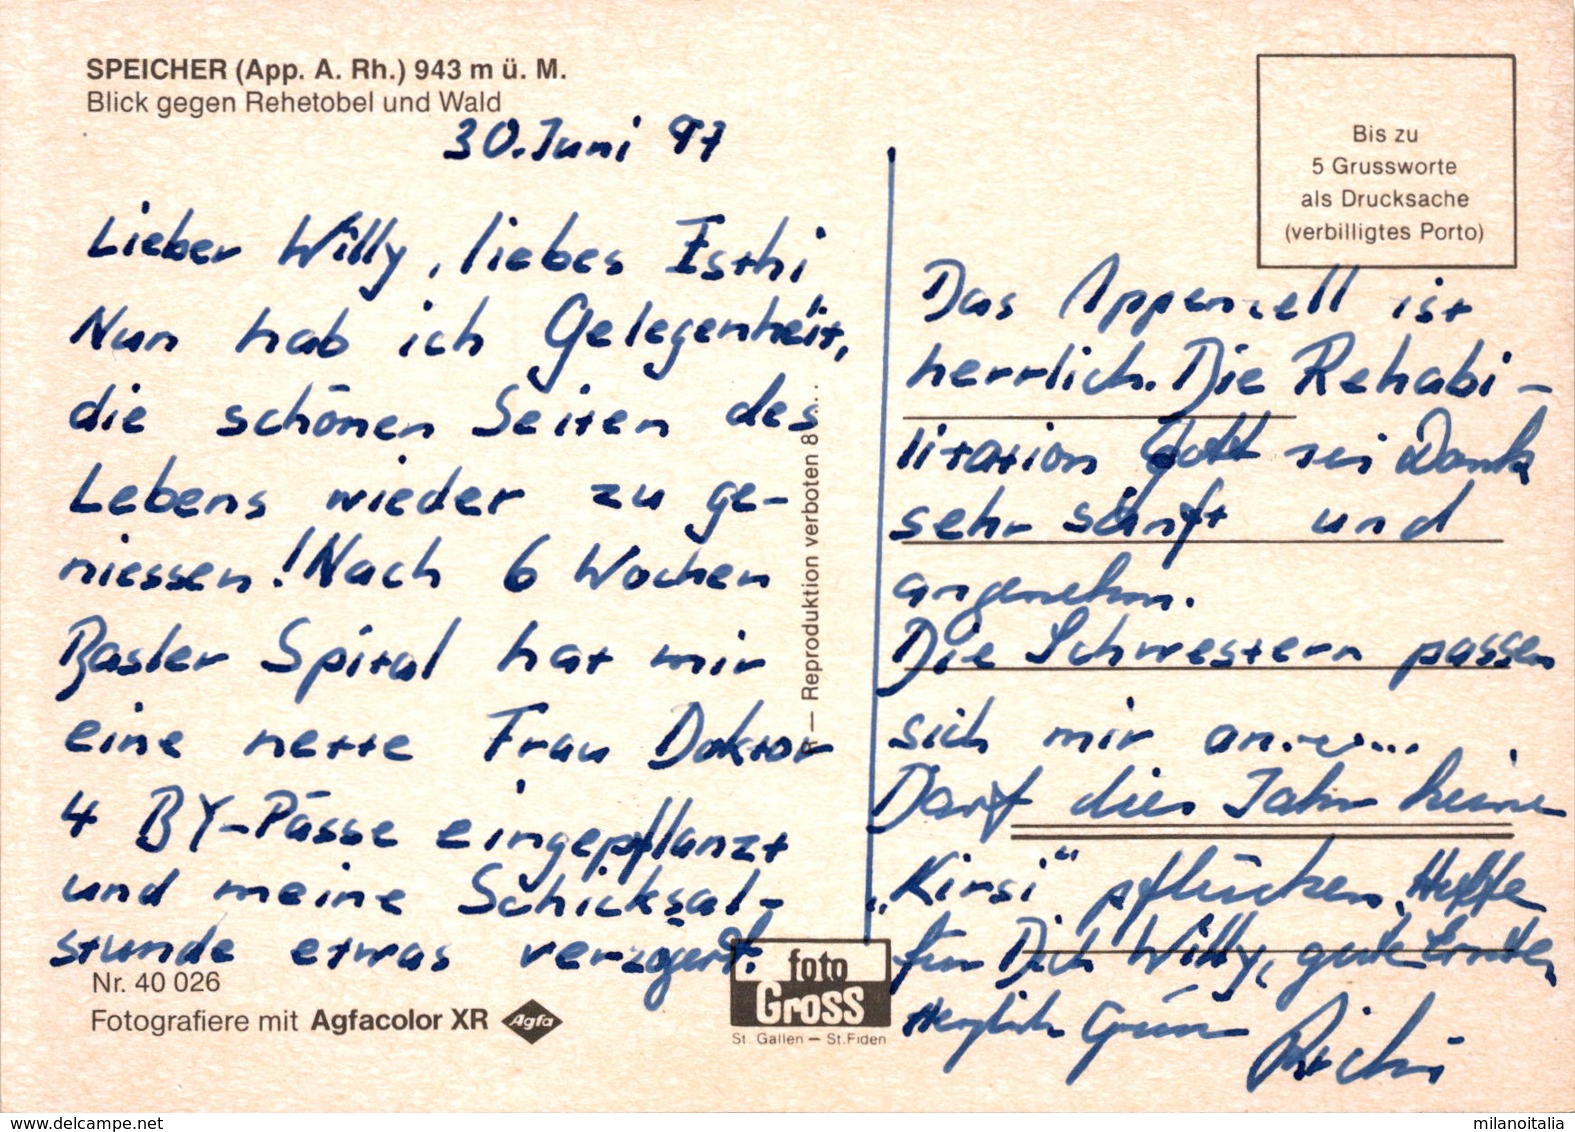 SPEICHER (App. A. Rh.) 943 m ü. M.
Blick gegen Rehetobel und Wald
30. Juni 97
Lieber Willy, liebes Esthi
Nun hab ich Gelegenheit,
die schönen Seiten des
Lebens wieder zu ge-
niessen! Nach 6 Wochen
Basler Spital hat mir
eine nette Frau Doktor
4 BY-Pässe eingepflanzt
und meine Schicksal-
stunde etwas verzögert.
Nr. 40 026
Fotografiere mit Agfacolor XR Agfa
— Reproduktion verboten 8...
foto
Gross
St. Gallen — St. Fiden
Bis zu
5 Grussworte
als Drucksache
(verbilligtes Porto)
Das Appenzell ist
herrlich. Die Rehabi-
litation Gott sei Dank
sehr sanft und
angenehm.
Die Schwestern passen
sich mir an
Darf dies Jahr keine
„Kirsi“ pflücken. Hoffe
für Dich Willy, gute Ernte,
Herzlich
Richi
milanoitalia
www.delcampe.net